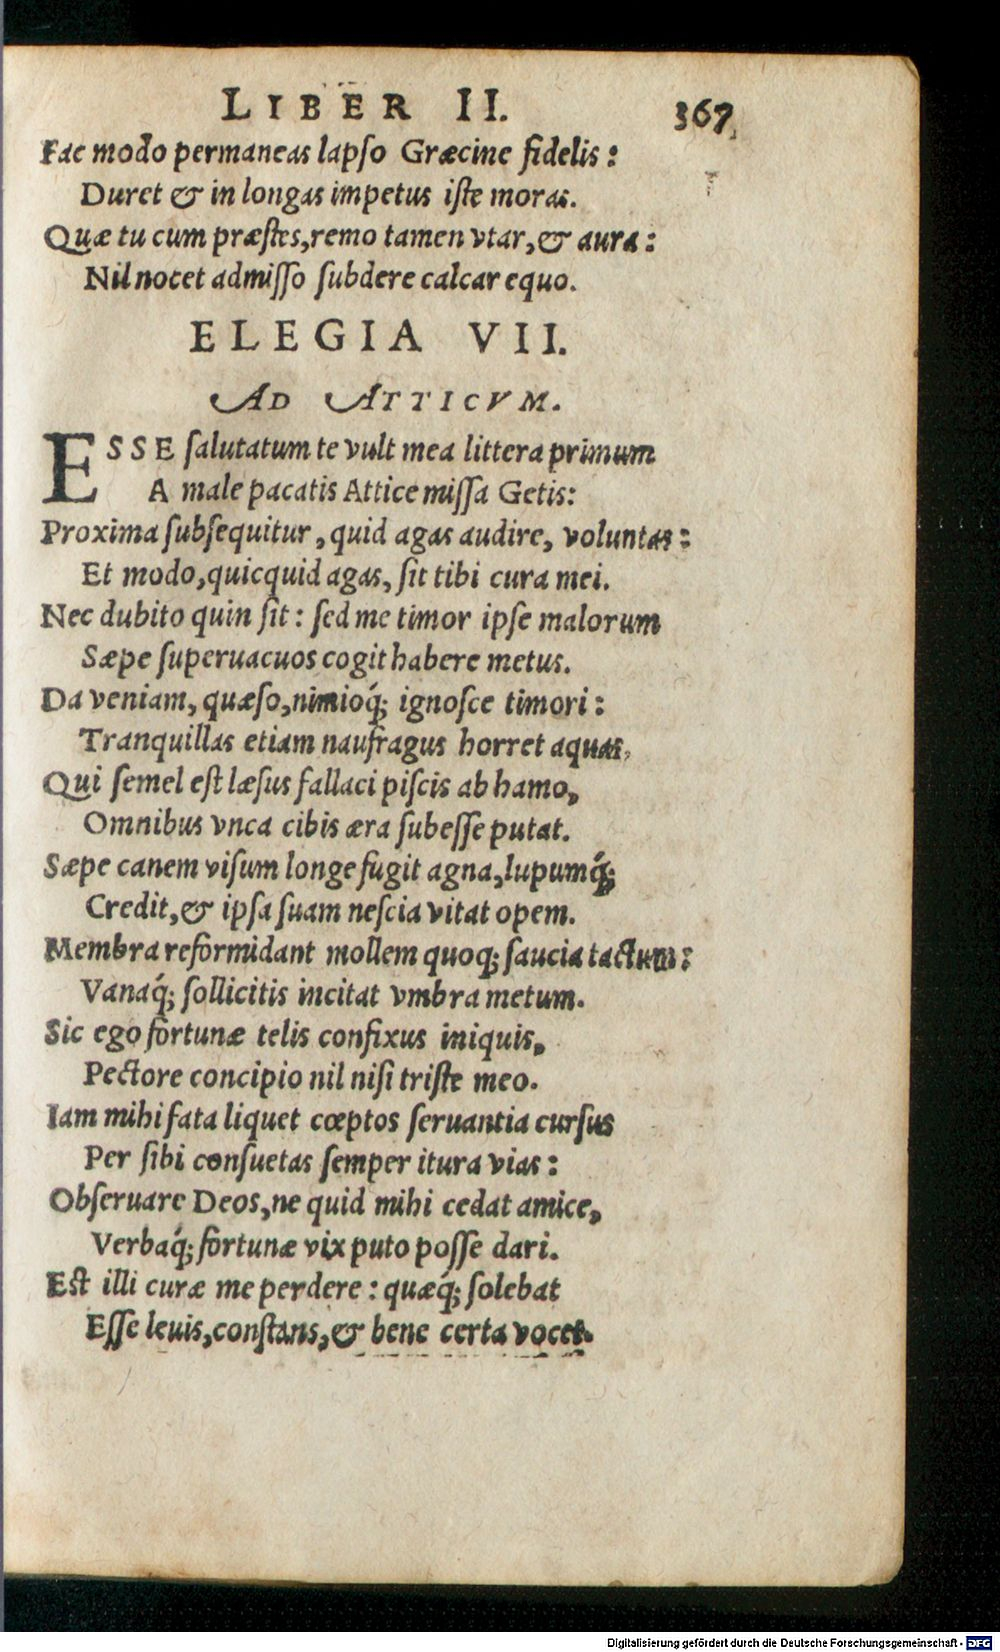 LIBER II. 367
Fac modo permaneas lapſo Græcine fidelis:
Duret & in longas impetus iſte moras.
Quæ tu cum præſtes, remo tamen vtar, & aura:
Nil nocet admiſſo ſubdere calcar equo.
ELEGIA VII.
AD ATTICVM.
ESSE ſalutatum te vult mea littera primum
A male pacatis Attice miſſa Getis:
Proxima ſubſequitur, quid agas audire, voluntas:
Et modo, quicquid agas, ſit tibi cura mei.
Nec dubito quin ſit: ſed me timor ipſe malorum
Sæpe ſuperuacuos cogit habere metus.
Da veniam, quæſo, nimioq́; ignoſce timori:
Tranquillas etiam naufragus horret aquas,
Qui ſemel eſt læſus fallaci piſcis ab hamo,
Omnibus vnca cibis æra ſubeſſe putat.
Sæpe canem viſum longe fugit agna, lupumq́;
Credit, & ipſa ſuam neſcia vitat opem.
Membra reformidant mollem quoq; ſaucia tactum:
Vanaq́; ſollicitis incitat vmbra metum.
Sic ego fortunæ telis confixus iniquis,
Pectore concipio nil niſi triſte meo.
Iam mihi fata liquet cœptos ſeruantia curſus
Per ſibi conſuetas ſemper itura vias:
Obſeruare Deos, ne quid mihi cedat amice,
Verbaq́; fortunæ vix puto poſſe dari.
Eſt illi curæ me perdere: quæq́; ſolebat
Eſſe leuis, conſtans, & bene certa vocet.
Digitalisierung gefördert durch die Deutsche Forschungsgemeinschaft - DFG